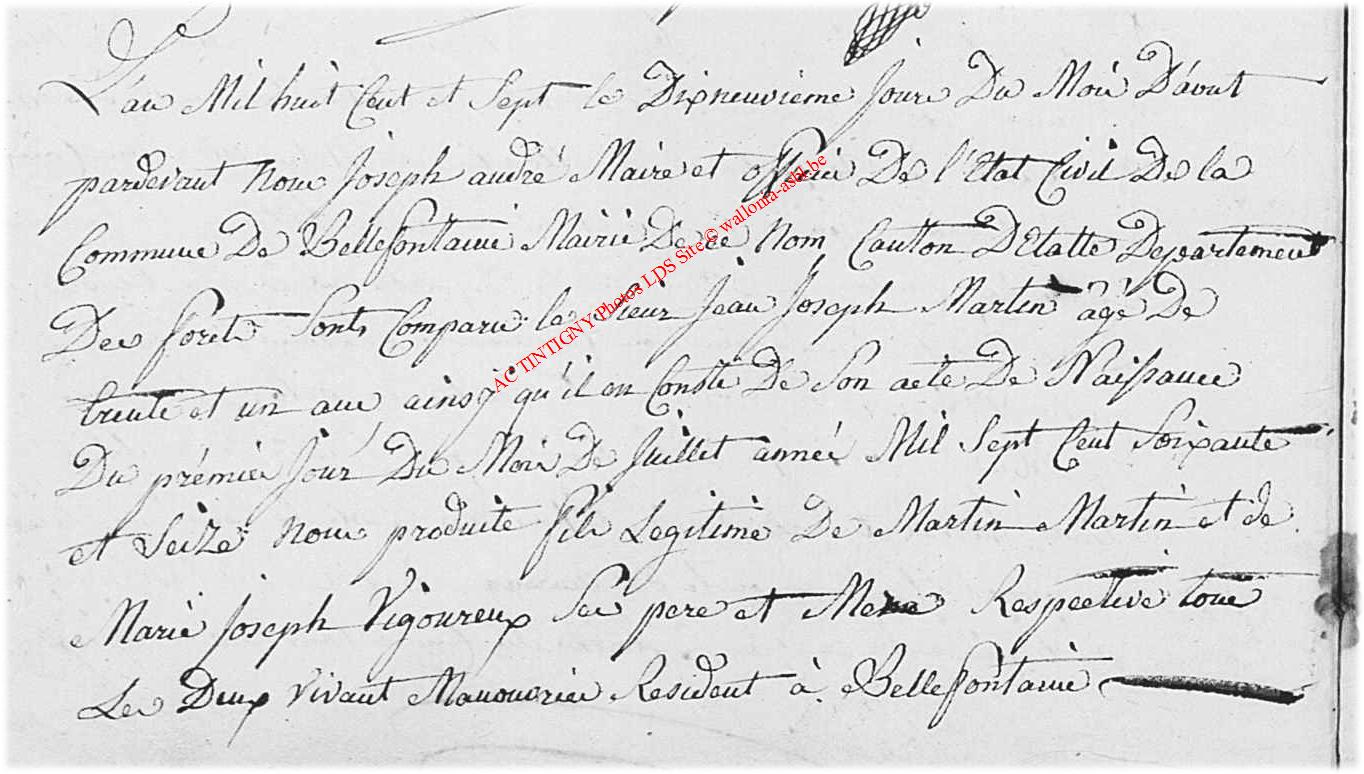 L'an Mil huit Cent et Sept le Dixneuvieme Jour Du Mois D'aout
pardevant Nous Joseph andré Maire et officier De l'Etat Civil De la
Commune De Bellefontaine Mairie De ce Nom Canton D'Etalle Departement
Des forets Sonts Comparu le Sieur Jean Joseph Martin âgé De
trente et un ans ainsy qu'il en Conste De Son acte De Naissance
Du prémier Jour Du Mois De Juillet année Mil Sept Cent Soixante
et Seize Nous produite fils Legitime De Martin Martin et de
Marie Joseph Vigoureux Ses pere et Mere Respective tous
Les Deux Vivant Manouvrier Resident à Bellefontaine
AC TINTIGNY Photos LDS Site © wallonia-asbl.be